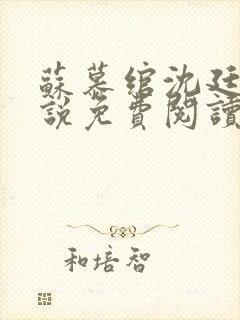 蘇慕綰沈廷
說免費閱讀
和培智